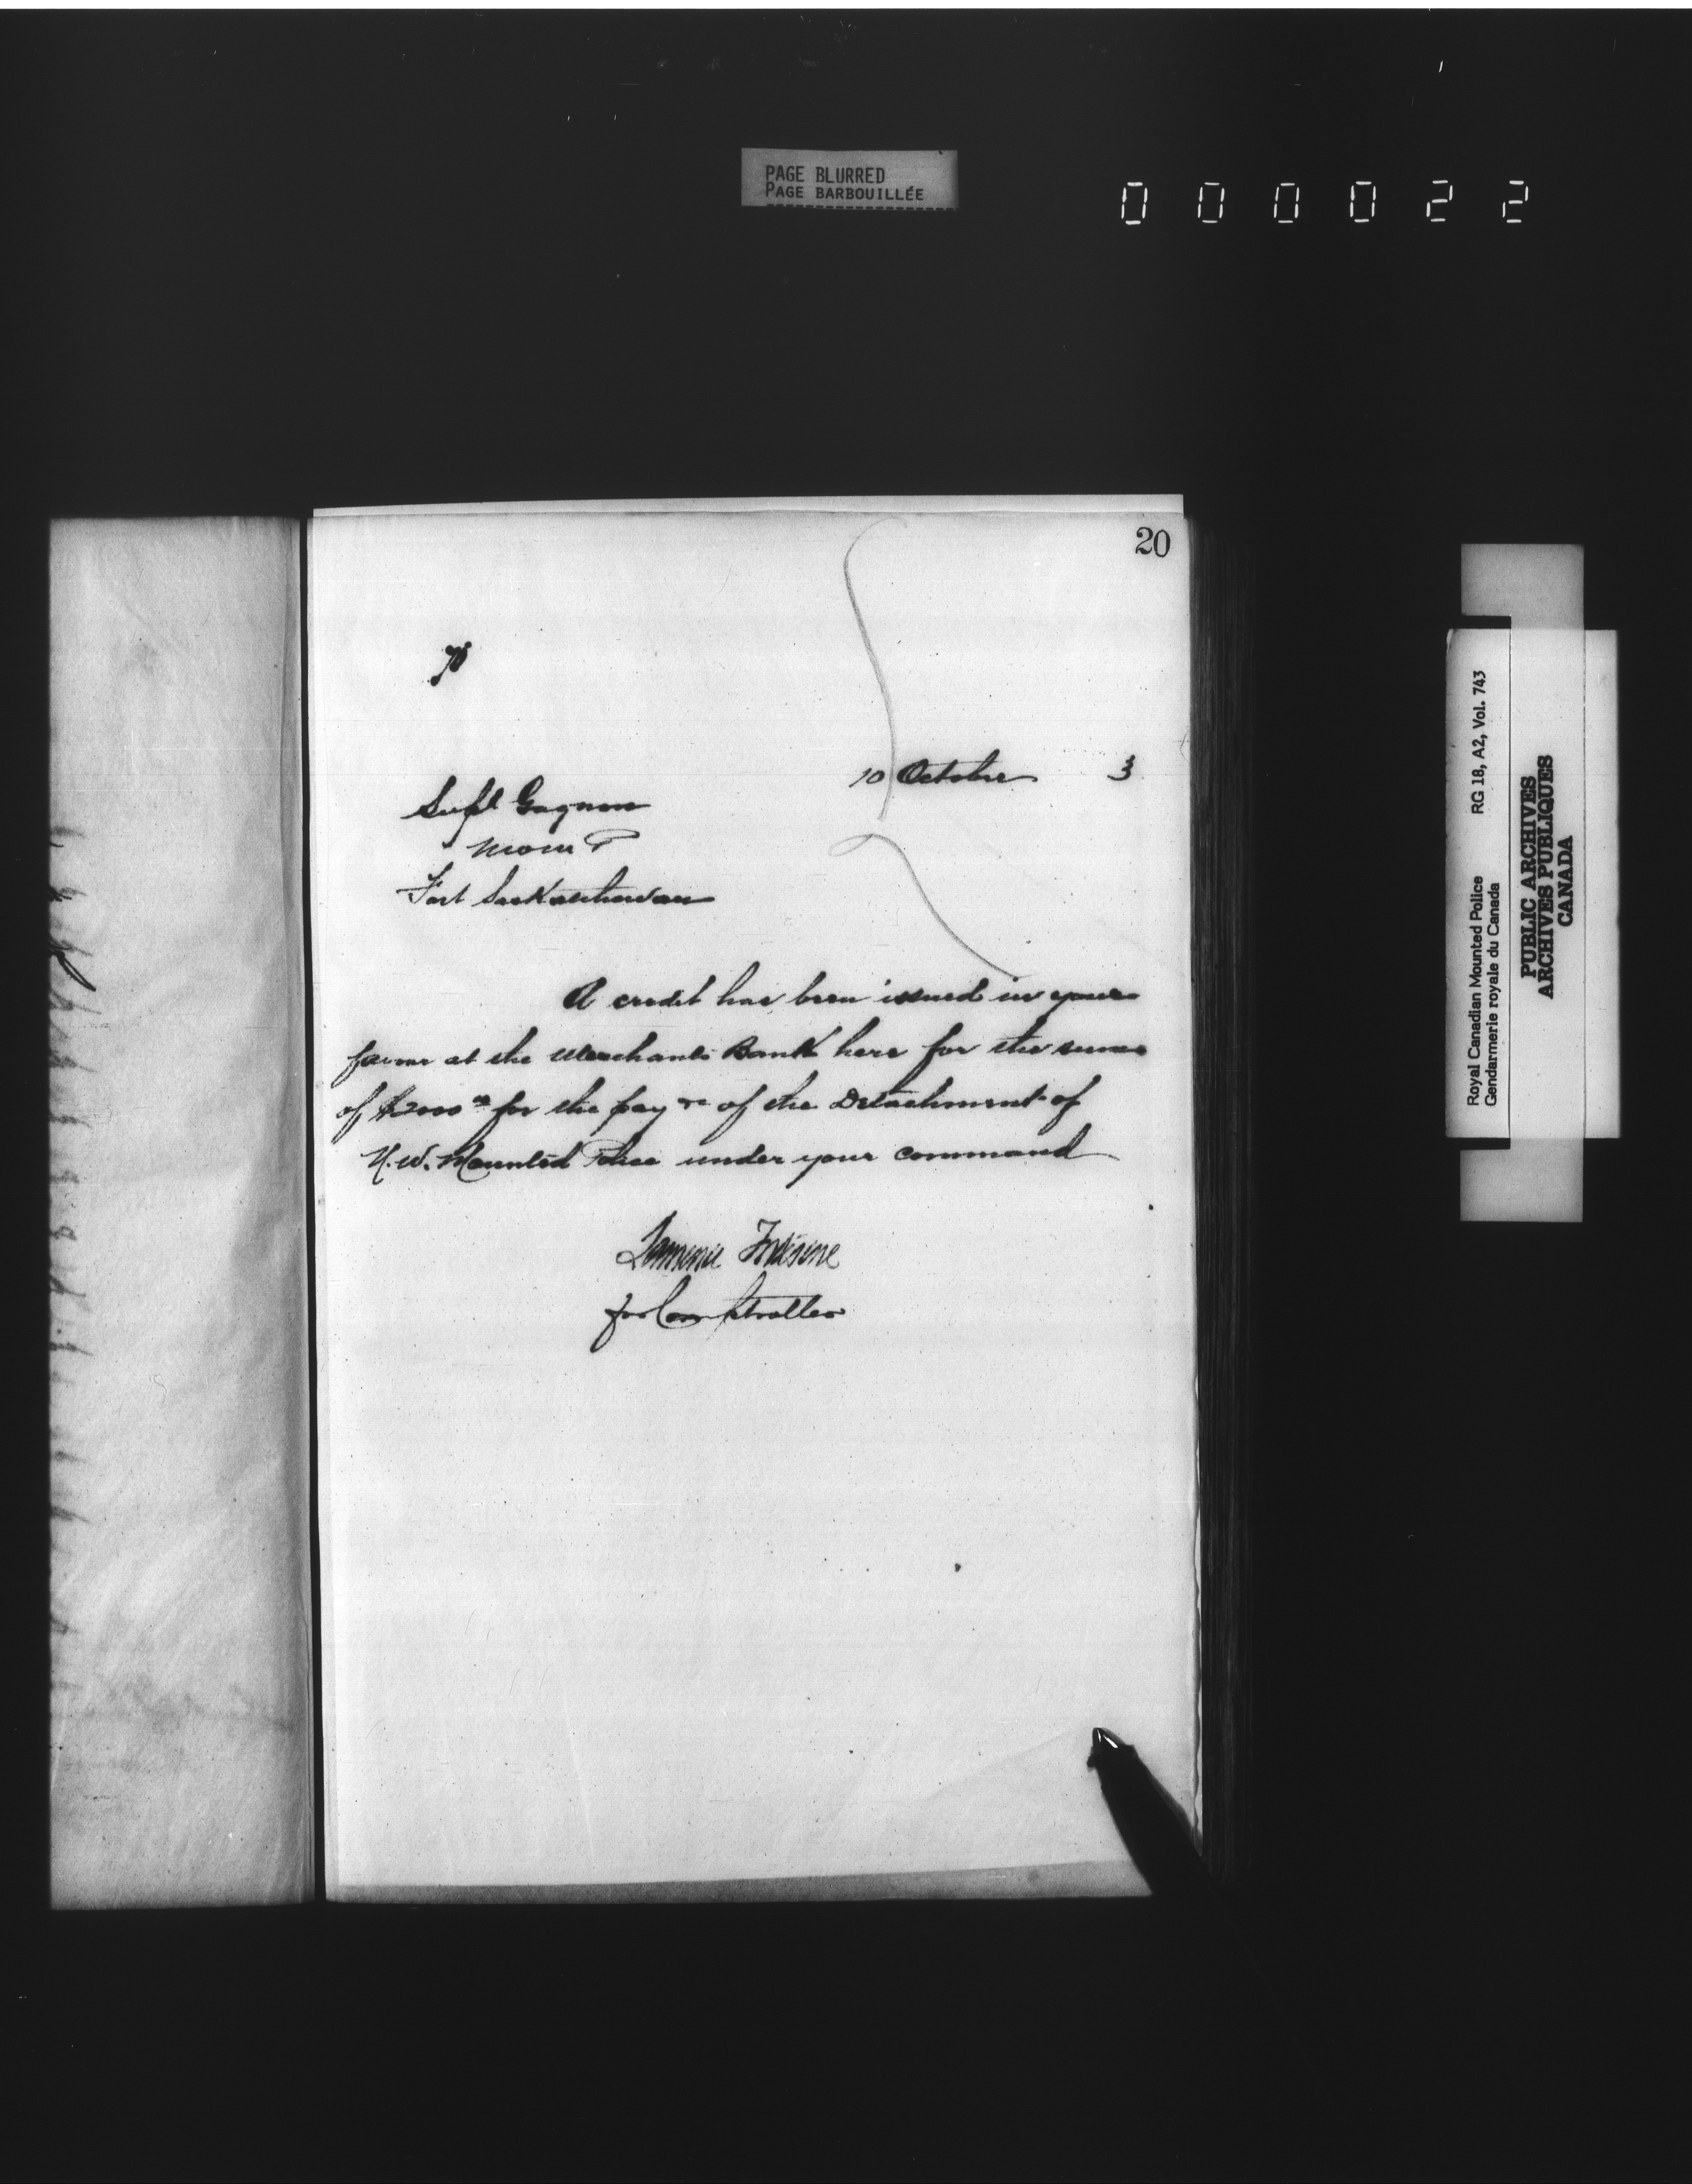 PAGE BLURRED
PAGE BARBOUILLÉE
000022
20
10 October 3
Supt Gagnon
N W M P
Fort Saskatchewan
A credit has been issued in your
favour at the Merchants Bank here for the sum
of $2000 00 for the pay &c of the Detachment of
N.W. Mounted Police under your command
Lawrence Fortescue
for Comptroller
Royal Canadian Mounted Police RG 18, A2, Vol. 743
Gendarmerie royale du Canada
PUBLIC ARCHIVES
ARCHIVES PUBLIQUES
CANADA